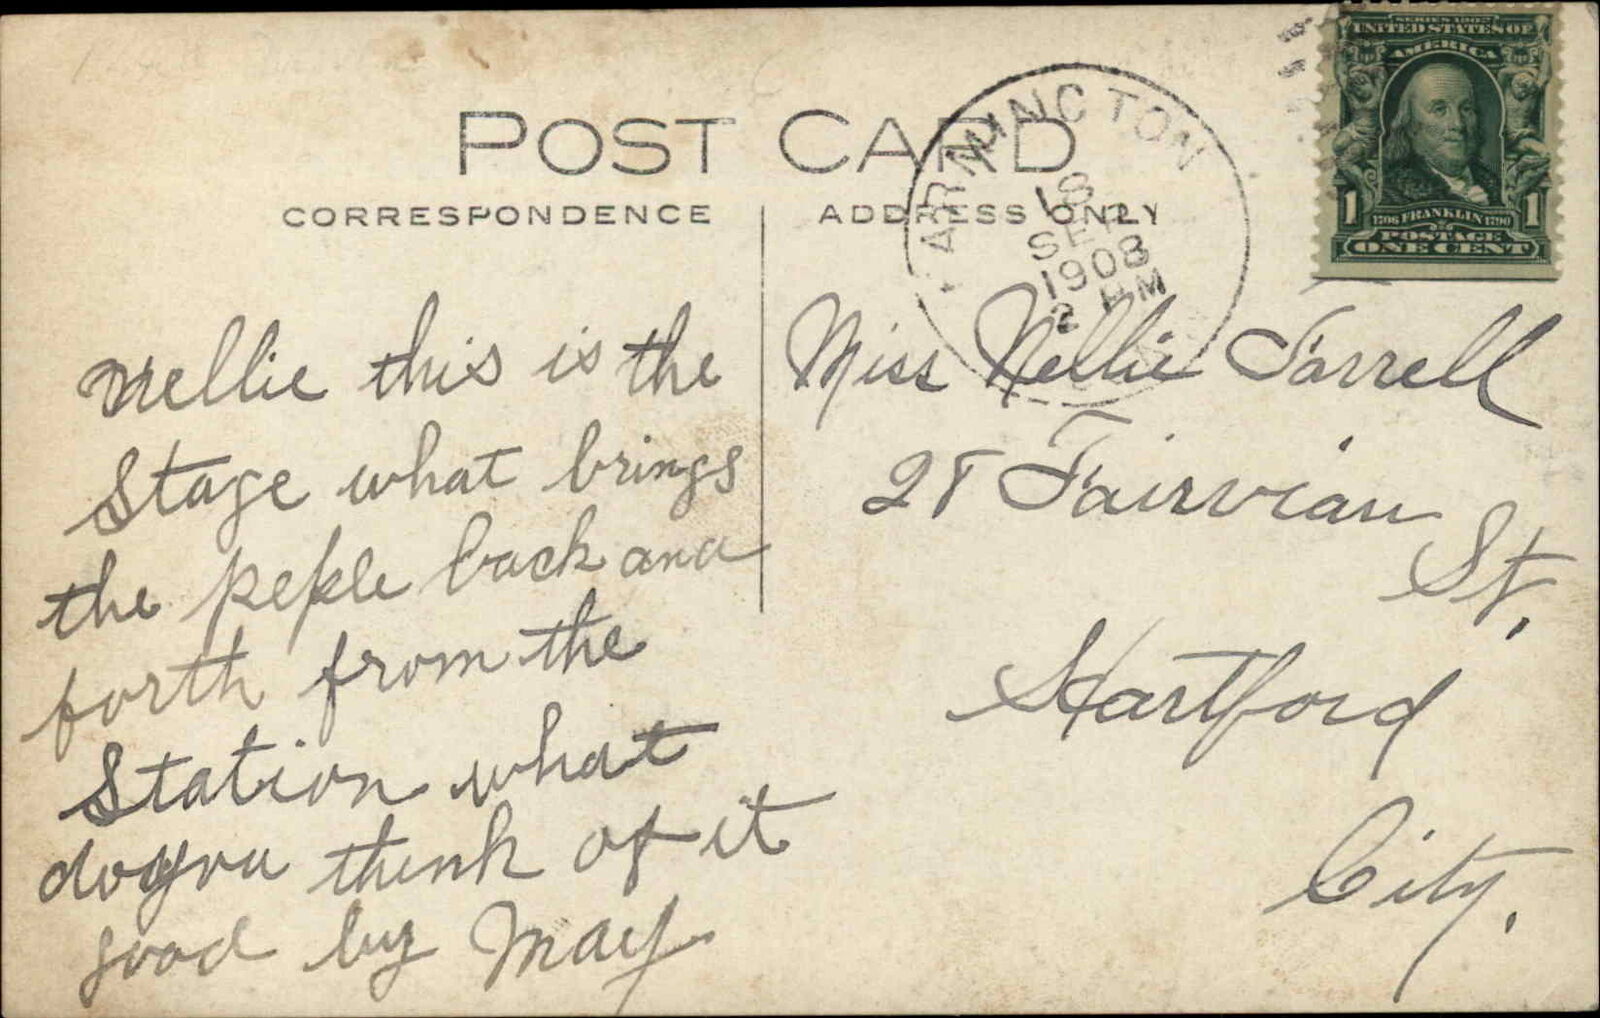 POST CARD
CORRESPONDENCE
ADDRESS ONLY
FARMINGTON
18
SEP
1908
2 PM
SERIES 1902
UNITED STATES OF
AMERICA
1 1706 FRANKLIN 1790 1
POSTAGE
ONE CENT
Nellie this is the
Stage what brings
the pepple back and
forth from the
Station what
do you think of it
good by May
Miss Nellie Farrell
28 Fairviau
St.
Hartford
City.